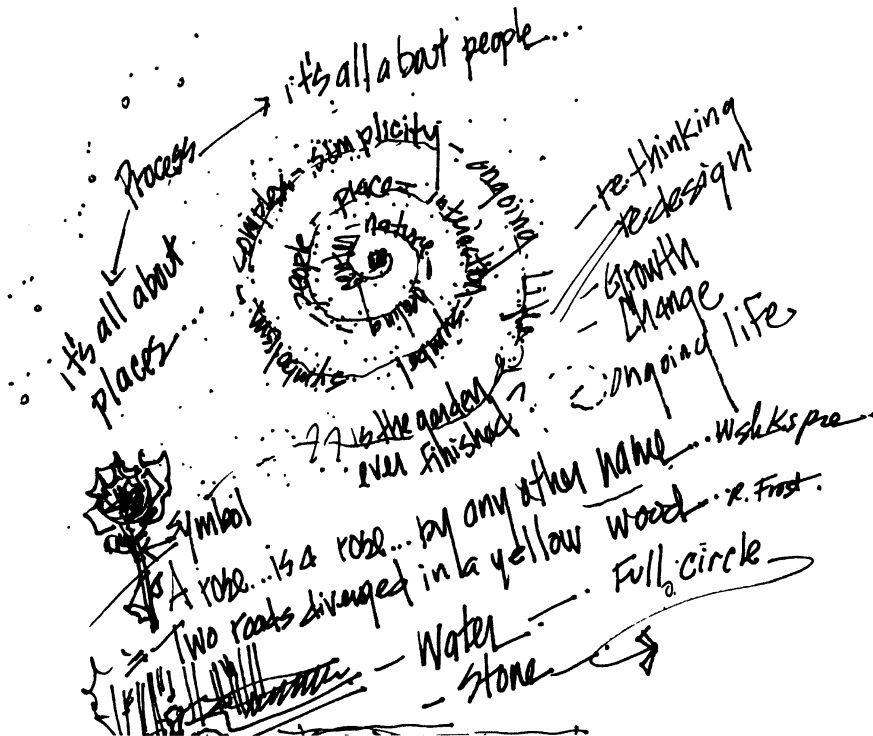 it's all about people...
Process
it's all about
places...
complex - simplicity - ongoing
people - place - interaction
nature
healing
symbol
symbolism
re-thinking
redesign
Growth
Change
ongoing life
?? is the garden
ever finished?
Symbol
A rose... is a rose... by any other name...
Two roads diverged in a yellow wood... R. Frost.
Full circle
- Water
- Stone